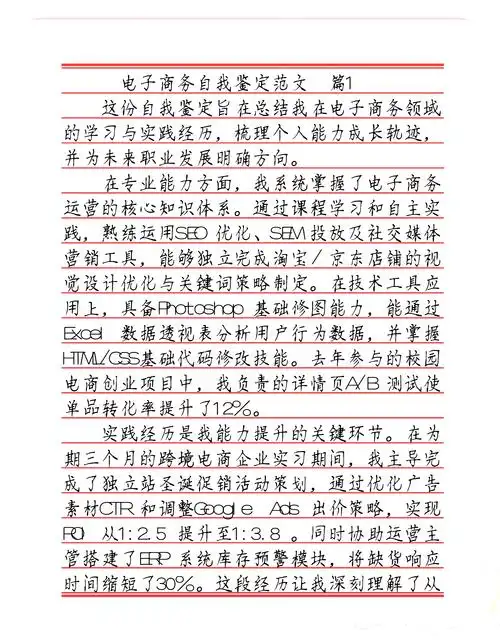 电子商务自我鉴定范文 篇1
这份自我鉴定旨在总结我在电子商务领域
的学习与实践经历，梳理个人能力成长轨迹，
并为未来职业发展明确方向。
在专业能力方面，我系统掌握了电子商务
运营的核心知识体系。通过课程学习和自主实
践，熟练运用SEO 优化、SEM 投放及社交媒体
营销工具，能够独立完成淘宝/ 京东店铺的视
觉设计优化与关键词策略制定。在技术工具应
用上，具备Photoshop 基础修图能力，能通过
Excel 数据透视表分析用户行为数据，并掌握
HTML/CSS基础代码修改技能。去年参与的校园
电商创业项目中，我负责的详情页A/B 测试使
单品转化率提升了12%。
实践经历是我能力提升的关键环节。在为
期三个月的跨境电商企业实习期间，我主导完
成了独立站圣诞促销活动策划，通过优化广告
素材CTR 和调整Google Ads 出价策略，实现
ROI 从1:2.5 提升至1:3.8 。同时协助运营主
管搭建了ERP 系统库存预警模块，将缺货响应
时间缩短了30%。这段经历让我深刻理解了从